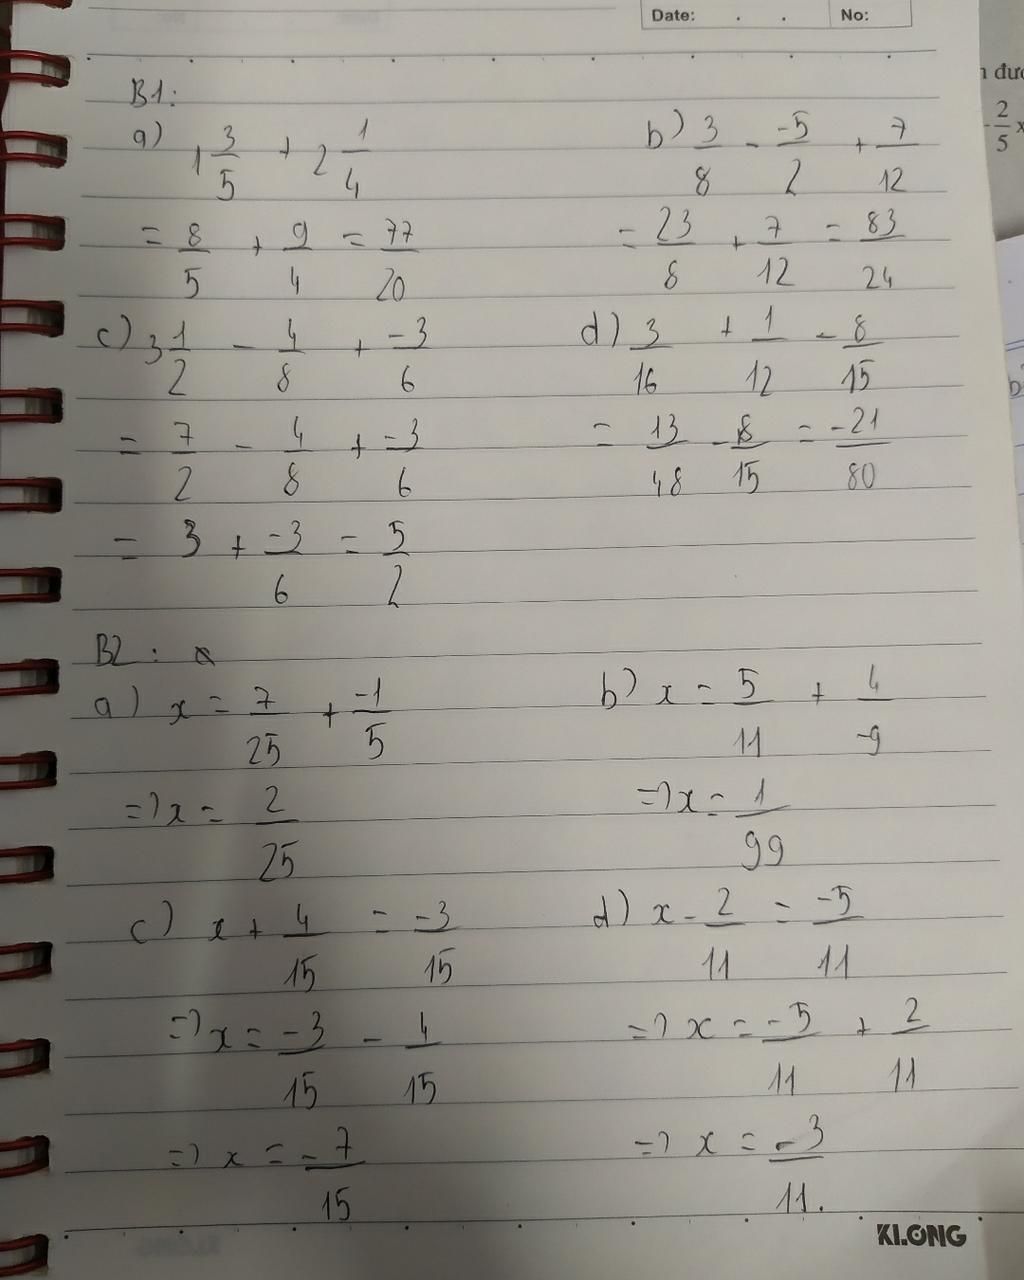 Date: . . No:
n đưc
2/5 x
B1:
a) 1 3/5 + 2 1/4
= 8/5 + 9/4 = 77/20
b) 3/8 - -5/2 + 7/12
= 23/8 + 7/12 = 83/24
c) 3 1/2 - 4/8 + -3/6
= 7/2 - 4/8 + -3/6
= 3 + -3/6 = 5/2
d) 3/16 + 1/12 - 8/15
= 13/48 - 8/15 = -21/80
B2:
a) x = 7/25 + -1/5
=> x = 2/25
b) x = 5/11 + 4/-9
=> x = 1/99
c) x + 4/15 = -3/15
=> x = -3/15 - 4/15
=> x = -7/15
d) x - 2/11 = -5/11
=> x = -5/11 + 2/11
=> x = -3/11.
KLONG